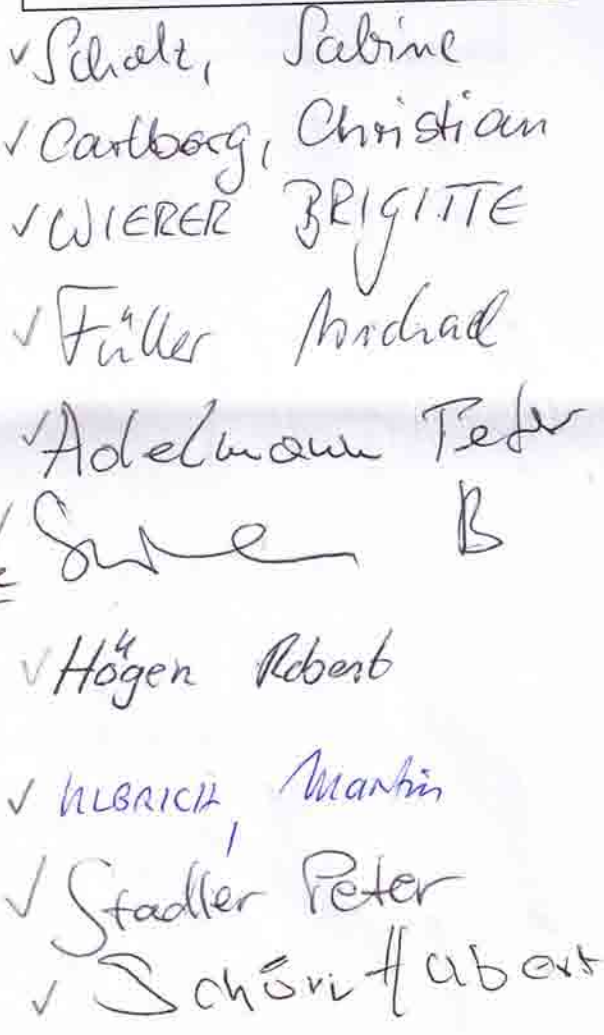 Scholz, Sabine
Carlborg, Christian
WIERER BRIGITTE
Füller Michael
Adelmann Peter
B
Högen Robert
ULBRICH, Martin
Stadler Peter
Schön Hubert